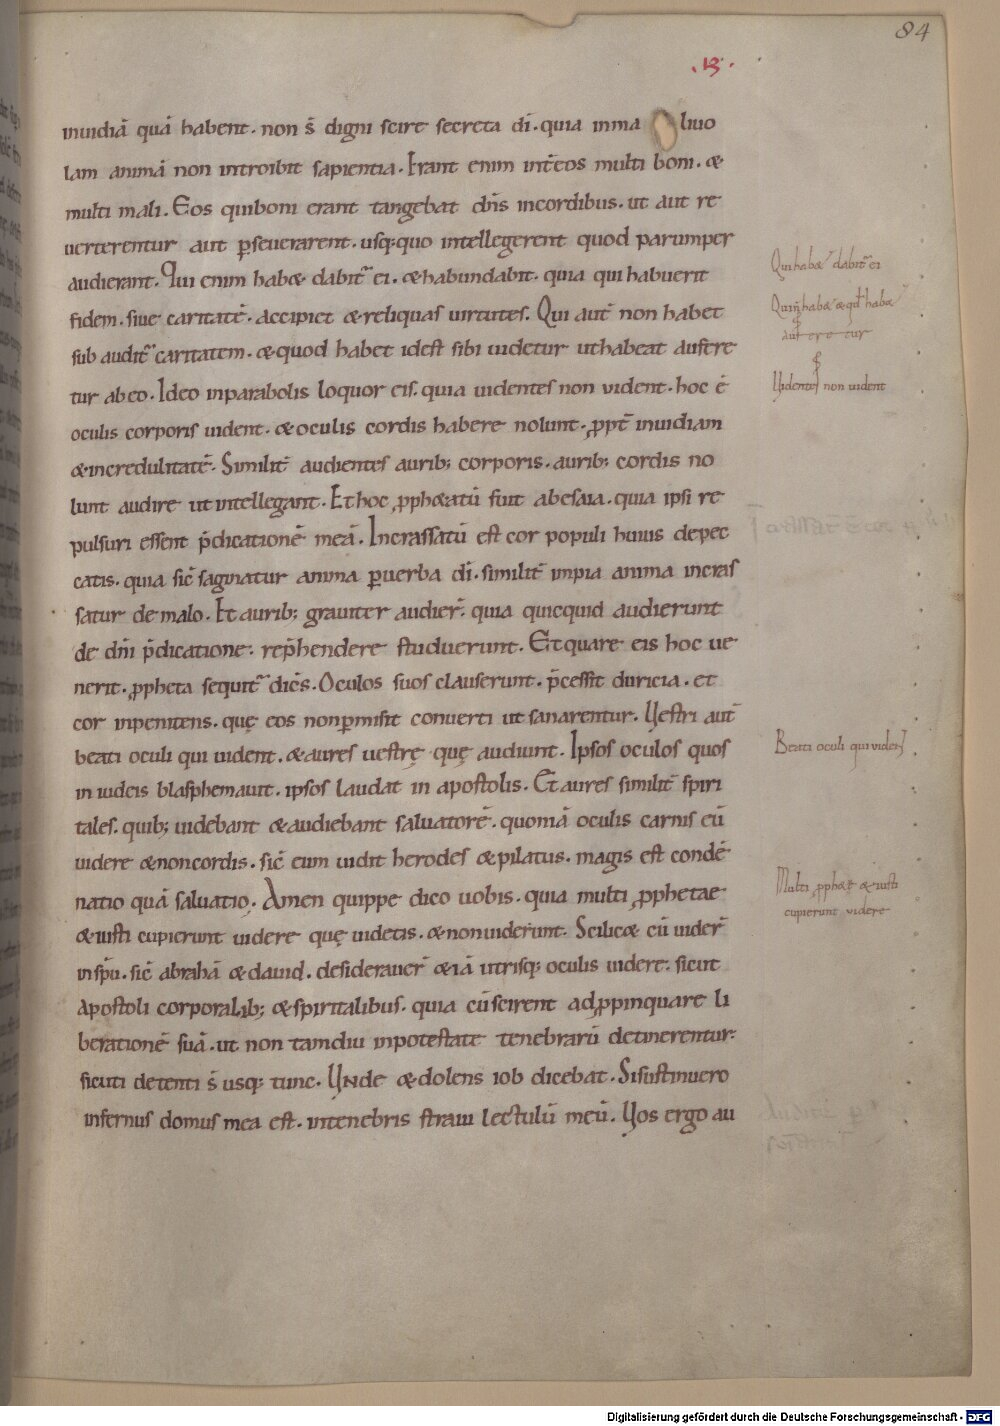 84
.13.
inuidiā quā habent. non s̄ digni scire secreta dī. quia inma liuo
lam animā non introibit sapientia. Erant enim int̄eos multi boni. &
multi mali. Eos quiboni erant tangebat dn̄s incordibus. ut aut re
uerterentur aut ꝑseuerarent. usq;quo intellegerent quod parumper
audierant. Qui enim hab& dabit᷑ ei. &habundabit. quia qui habuerit
fidem. siue caritatē. accipiet &reliquas uirtutes. Qui aut̄ non habet
sub audit᷑ caritatem. &quod habet idest sibi uidetur uthabeat aufere
tur abeo. Ideo inparabolis loquor eis. quia uidentes non uident. hoc ē
oculis corporis uident. &oculis cordis habere nolunt. ꝓpt̄ inuidiam
&incredulitatē. Similit̄ audientes aurib; corporis. aurib; cordis no
lunt audire ut intellegant. Et hoc ꝓph&atū fuit abesaia. quia ipsi re
pulsuri essent p̄dicationē meā. Incrassatū est cor populi huius depec
catis. quia sic̄ saginatur anima ꝑuerba dī. similit̄ impia anima incras
satur de malo. Et aurib; grauiter audier̄. quia quicquid audierunt
de dn̄i p̄dicatione. rep̄hendere studuerunt. Et quare eis hoc ue
nerit. ꝓpheta sequit᷑ dicēs. Oculos suos clauserunt. p̄cessit duricia. et
cor inpenitens. quę eos nonꝑmisit conuerti ut sanarentur. Uestri aut̄
beati oculi qui uident. &aures uestrę quę audiunt. Ipsos oculos quos
in iudeis blasphemauit. ipsos laudat in apostolis. Et aures similit̄ spiri
tales. quib; uidebant &audiebant saluatorē. quomā oculis carnis eū
uidere &noncordis. sic̄ eum uidit herodes &pilatus. magis est condē
natio quā saluatio. Amen quippe dico uobis. quia multi ꝓphetae
&iusti cupierunt uidere quę uidetis. &nonuiderunt. Scilic& cū uider̄
insp̄u. sic̄ abrahā &dauid. desiderauer̄ &iā utrisq; oculis uidere. sicut
apostoli corporalib; &spiritalibus. quia cū scirent adꝓpinquare li
berationē suā. ut non tamdiu inpotestate tenebrarū detinerentur.
sicuti detenti s̄ usq; tunc. Unde &dolens iob dicebat. Sisustinuero
infernus domus mea est. intenebris straui lectulū meū. Uos ergo au
Qui hab& dabit᷑ ei
hab& &qd̄ hab&
Uidentes non uident
Beati oculi qui vident
Multi ꝓph&ę &iusti
cupierunt videre
Digitalisierung gefördert durch die Deutsche Forschungsgemeinschaft - DFG